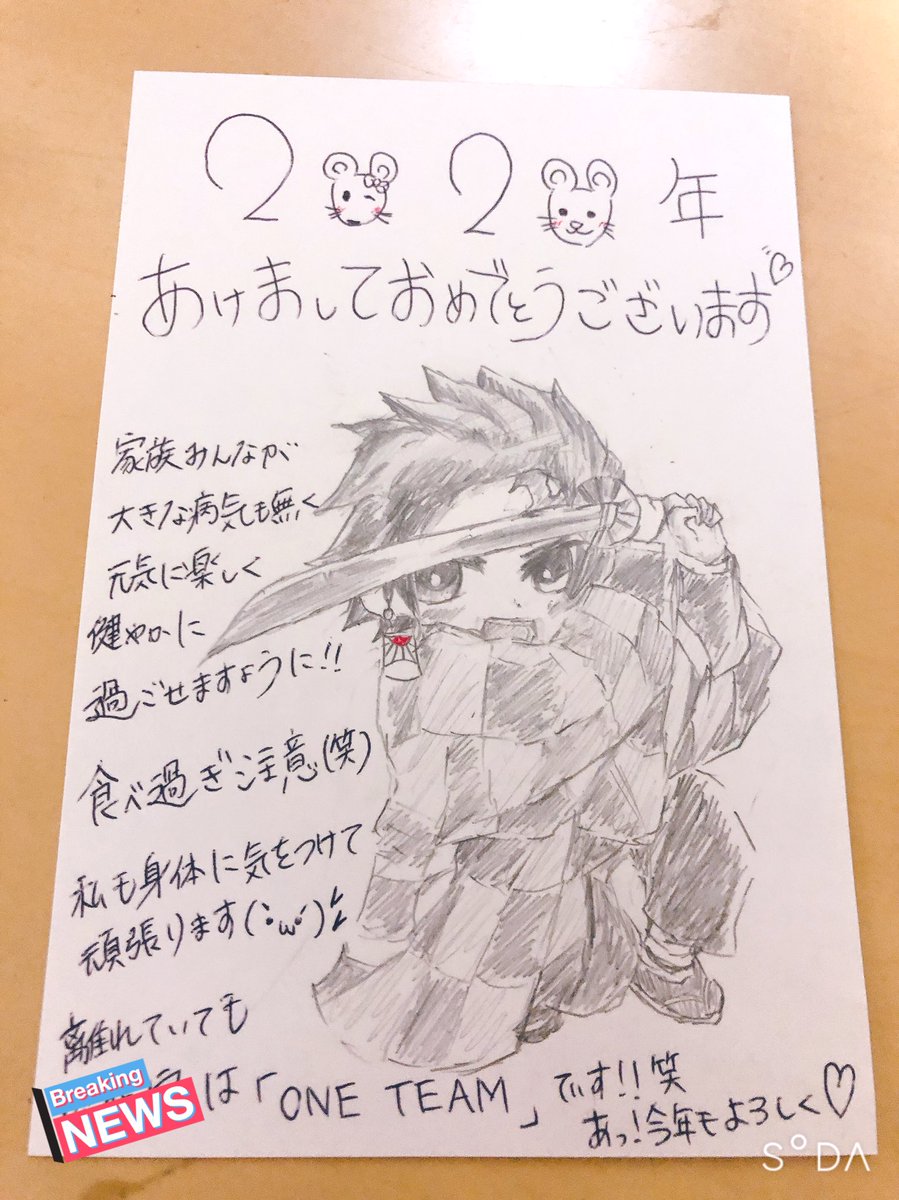 2020年
あけましておめでとうございます♡
家族みんなが
大きな病気も無く
元気に楽しく
健やかに
過ごせますように!!
食べ過ぎ注意(笑)
私も身体に気をつけて
頑張ります(`･ω･´)
離れていても
は「ONE TEAM」です!!笑
あっ!今年もよろしく♡
Breaking
NEWS
SODA